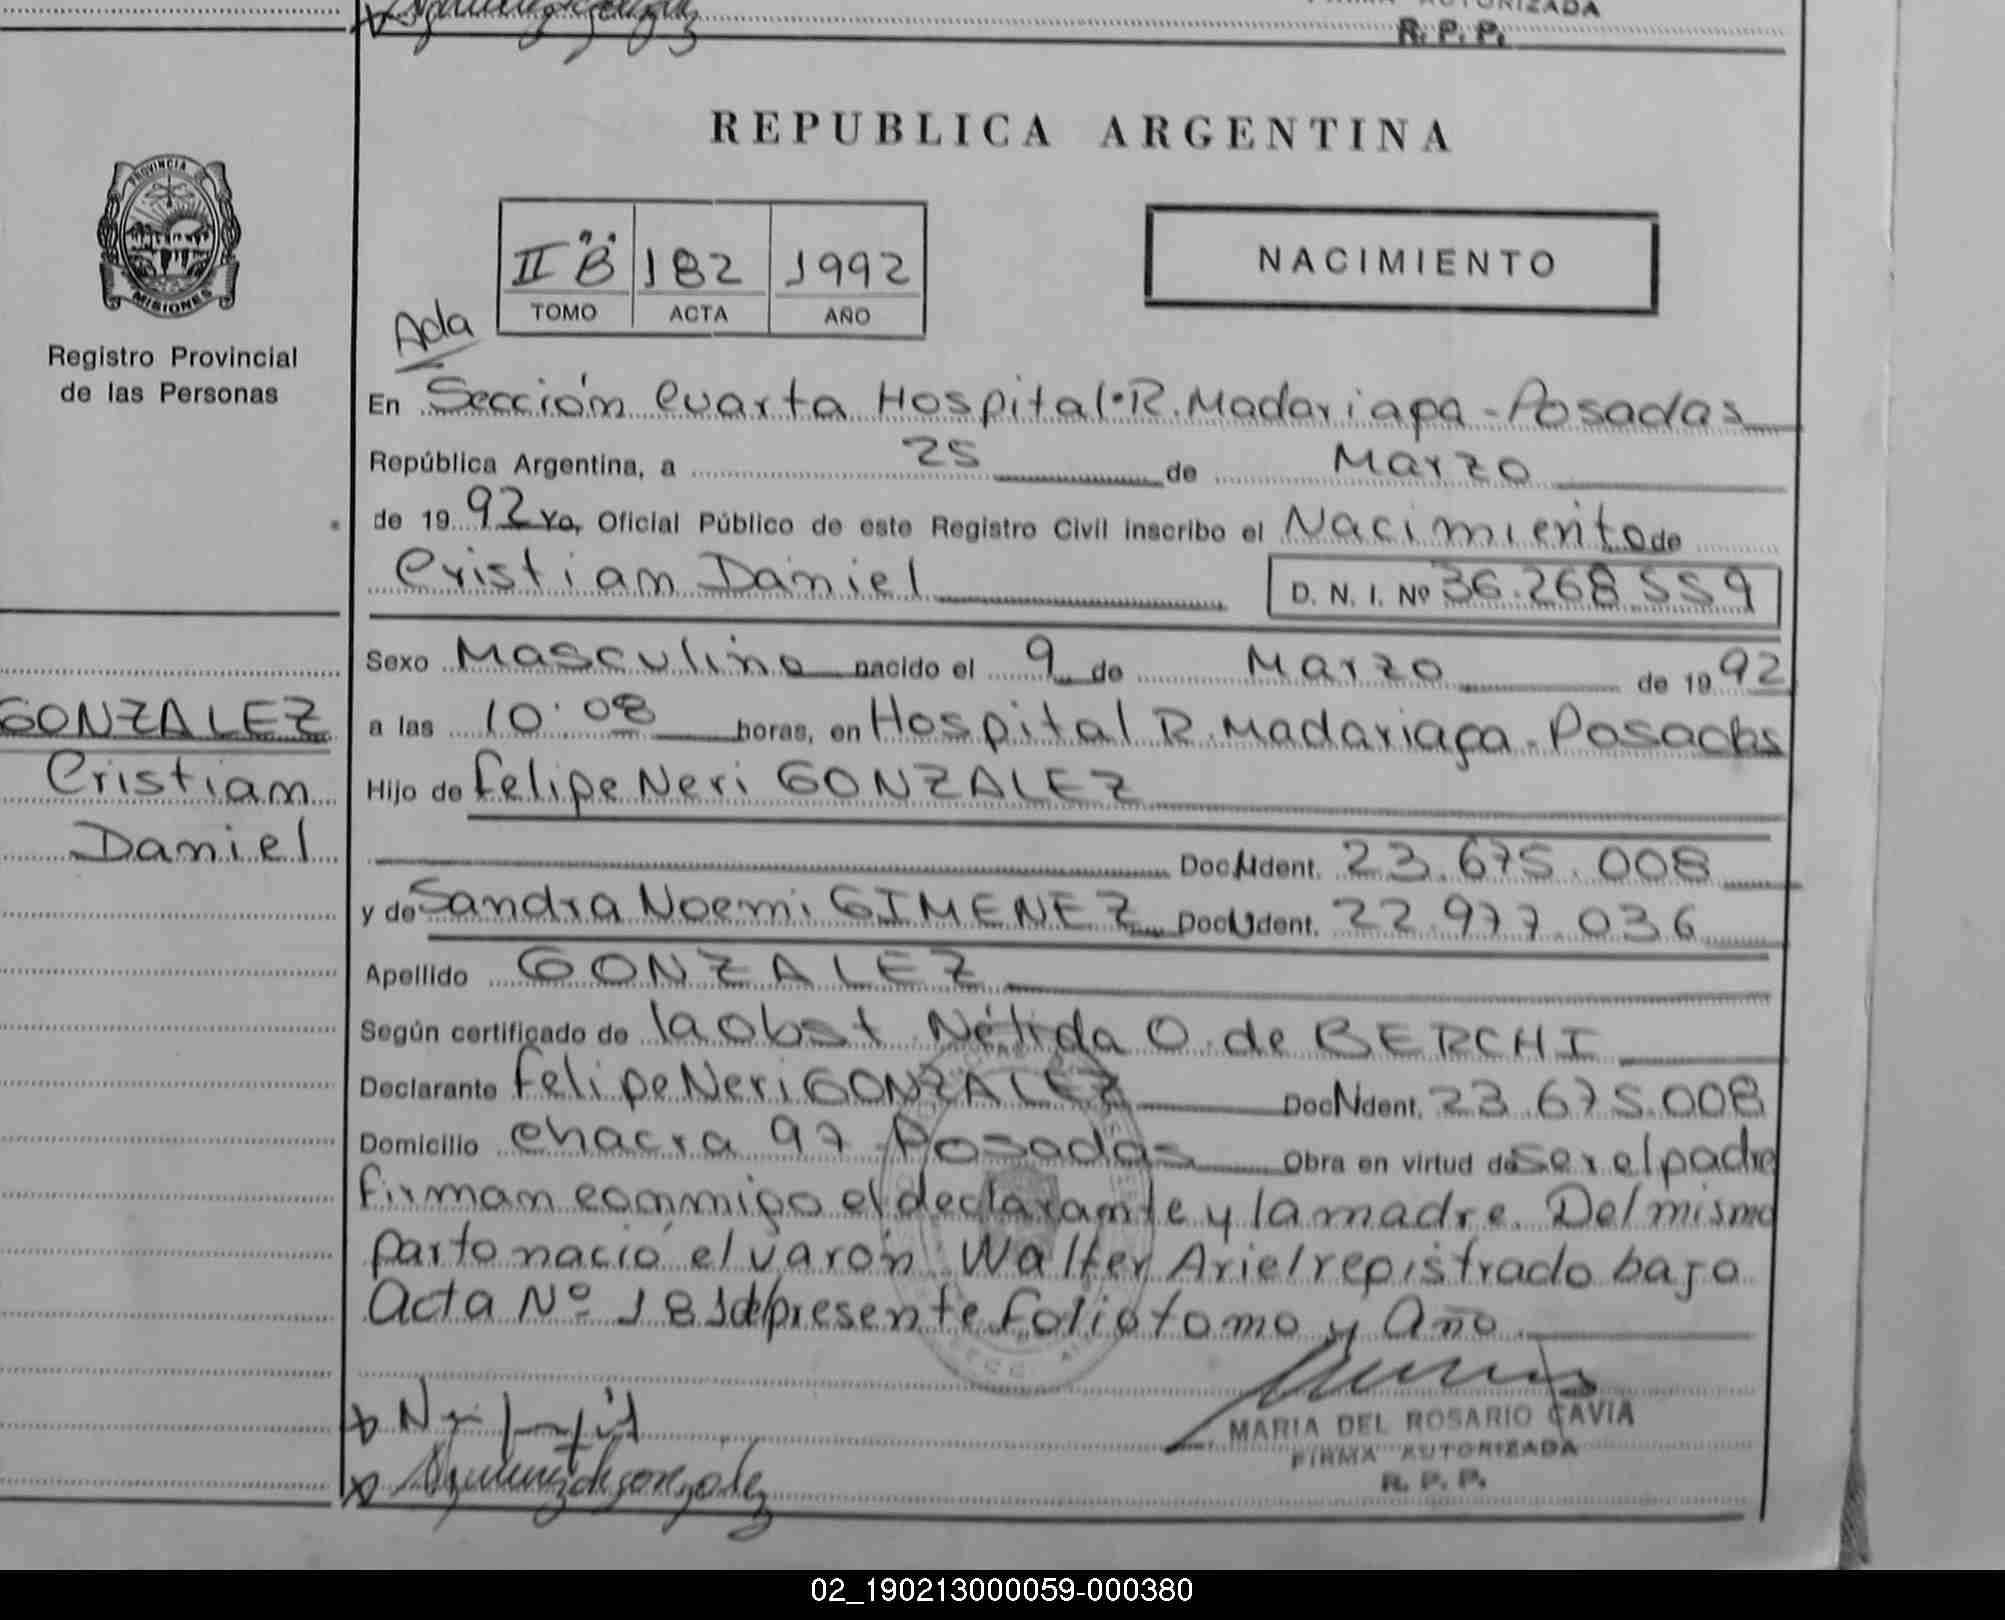 AUTORIZADA
R. P. P.
PROVINCIA DE
MISIONES
Registro Provincial
de las Personas
REPUBLICA ARGENTINA
II "B" 182 1992
TOMO ACTA AÑO
NACIMIENTO
Ada
En Sección Cuarta Hospital R. Madariaga - Posadas
República Argentina, a 25 de Marzo
de 1992 Yo, Oficial Público de este Registro Civil inscribo el Nacimiento de
Cristian Daniel D. N. I. Nº 36.268.559
Sexo Masculino nacido el 9 de Marzo de 1992
a las 10:08 horas, en Hospital R. Madariaga - Posadas
Hijo de Felipe Neri GONZALEZ
Doc. N Ident. 23.675.008
y de Sandra Noemi GIMENEZ Doc. N Ident. 22.977.036
Apellido GONZALEZ
Según certificado de la obst Nélida O. de BERCHI
Declarante Felipe Neri GONZALEZ Doc. N Ident. 23.675.008
Domicilio Chacra 97 Posadas Obra en virtud de ser el padre
firman conmigo el declarante y la madre. Del mismo
parto nació el varón Walter Ariel registrado bajo
Acta Nº 181 del presente folio tomo y Año
GONZALEZ
Cristian
Daniel
MARIA DEL ROSARIO CAVIA
FIRMA AUTORIZADA
R. P. P.
02_190213000059-000380